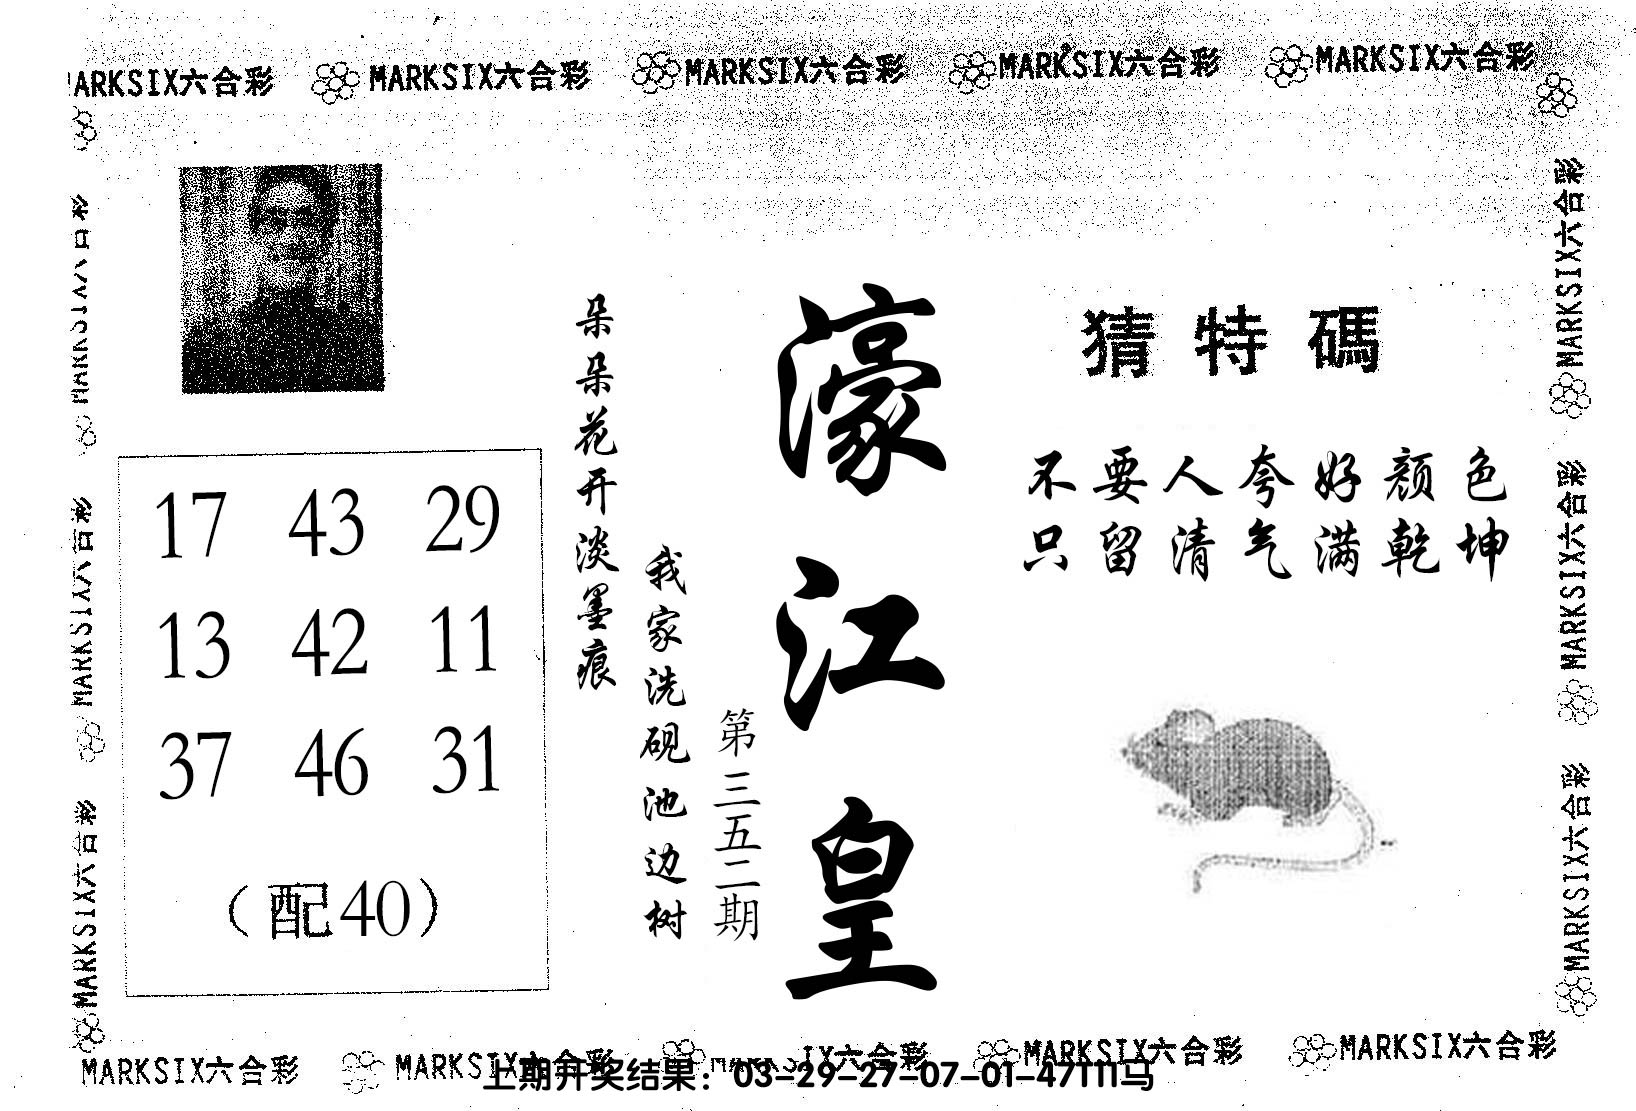 MARKSIX六合彩 MARKSIX六合彩 MARKSIX六合彩 MARKSIX六合彩 MARKSIX六合彩
猜特碼
不要人夸好颜色
只留清气满乾坤
濠江皇
第三五二期
我家洗砚池边树
朵朵花开淡墨痕
17 43 29
13 42 11
37 46 31
（配40）
MARKSIX六合彩
MARKSIX六合彩
MARKSIX六合彩
MARKSIX六合彩
MARKSIX六合彩
MARKSIX六合彩
MARKSIX六合彩 MARKSIX六合彩 MARKSIX六合彩 MARKSIX六合彩 MARKSIX六合彩
上期开奖结果：03-29-27-07-01-47T11马